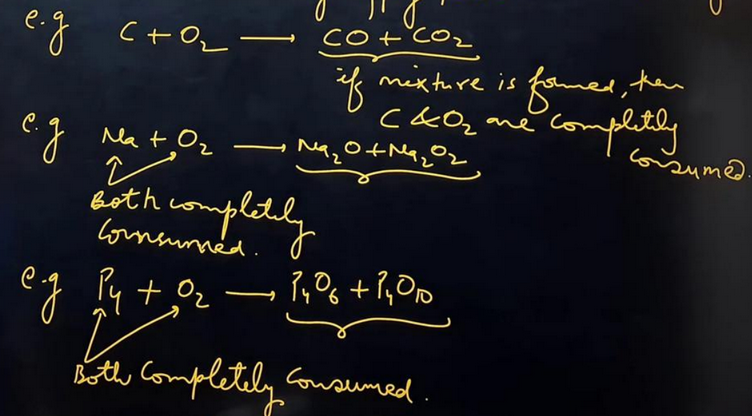 e.g C + O₂ ⟶ CO + CO₂
if mixture is formed, then
C & O₂ are completely
consumed.
e.g Na + O₂ ⟶ Na₂O + Na₂O₂
Both completely
Consumed.
e.g P₄ + O₂ ⟶ P₄O₆ + P₄O₁₀
Both Completely Consumed.